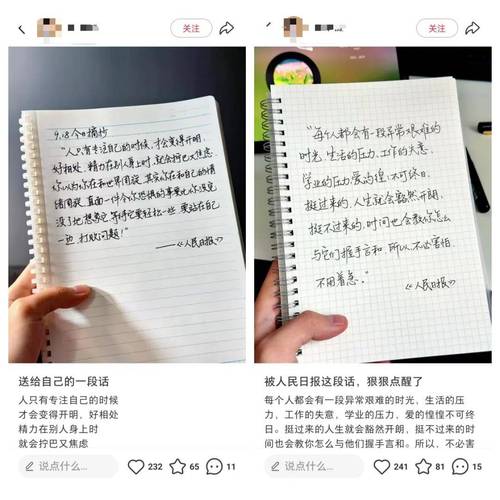 关注
9.18 今日摘抄
"人只有专注自己的时候,才会变得开明,
好相处,精力在别人身上时,就会拧巴又焦虑
你以为你在和世界周旋,其实你在和自己的情
绪周旋,
没
一些,打败问题!"
——《人民日报》
送给自己的一段话
人只有专注自己的时候
才会变得开明,好相处
精力在别人身上时
就会拧巴又焦虑
说点什么...
232
65
11
关注
"每个人都会有一段异常艰难的
时光,生活的压力,工作的失意,
学业的压力,爱的惶惶不可终日.
挺过来的,人生就会豁然开朗,
挺不过来的,时间也会教你怎么
与它们握手言和,所以,不必害怕,
不用着急."
《人民日报》
被人民日报这段话,狠狠点醒了
每个人都会有一段异常艰难的时光,生活的压
力,工作的失意,学业的压力,爱的惶惶不可终
日。挺过来的人生就会豁然开朗,挺不过来的时
间也会教你怎么与他们握手言和。所以,不必害
说点什么...
241
81
15